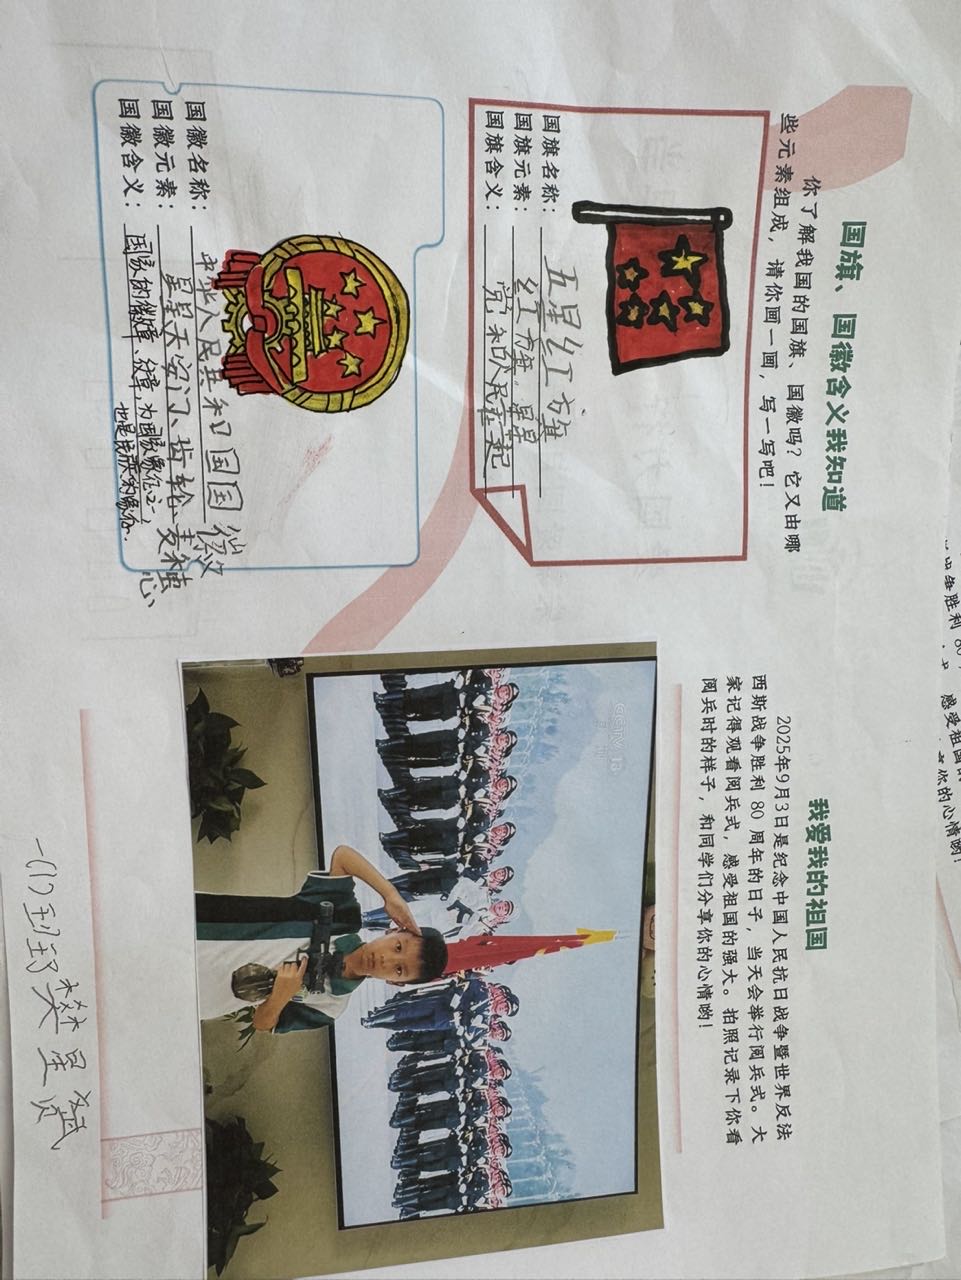 国旗、国徽含义我知道
你了解我国的国旗、国徽吗？它又由哪
些元素组成，请你画一画，写一写吧！
国旗名称：五星红旗
国旗元素：红旗、星星
国旗含义：党和人民在一起
国徽名称：中华人民共和国国徽
国徽元素：星星天安门、齿轮麦穗
国徽含义：国家的徽章、纹章，为国家象征之一，
也是民族的象征。
我爱我的祖国
2025年9月3日是纪念中国人民抗日战争暨世界反法
西斯战争胜利 80 周年的日子，当天会举行阅兵式。大
家记得观看阅兵式，感受祖国的强大。拍照记录下你看
阅兵时的样子，和同学们分享你的心情哟！
CCTV 13
一（1）班